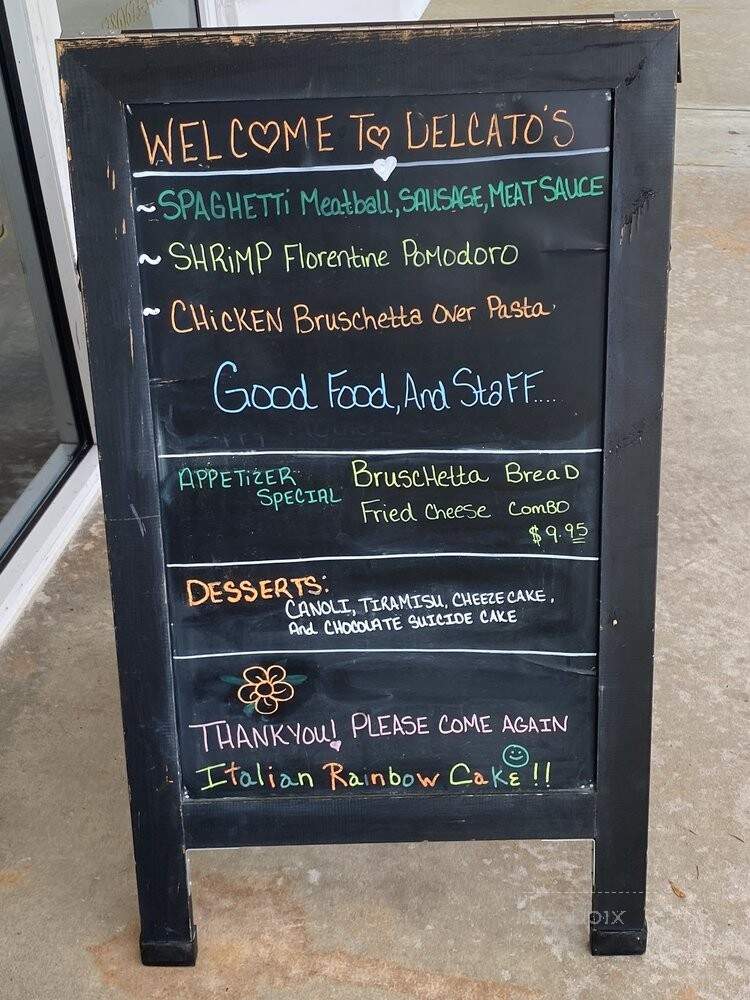 WELCOME TO DELCATO'S
~SPAGHETTi Meatball, SAUSAGE, MEAT SAUCE
~ SHRiMP Florentine POMODORO
~ CHiCKEN Bruschetta Over Pasta
Good Food, And StaFF....
APPETiZER SPECIAL
BruscHetta BreaD
Fried Cheese ComBO
$9.95
DESSERTS:
CANOLI, TIRAMISU, CHEEZECAKE,
And CHOCOLATE SUICIDE CAKE
THANKYOU! PLEASE COME AGAIN
Italian Rainbow Cake!!